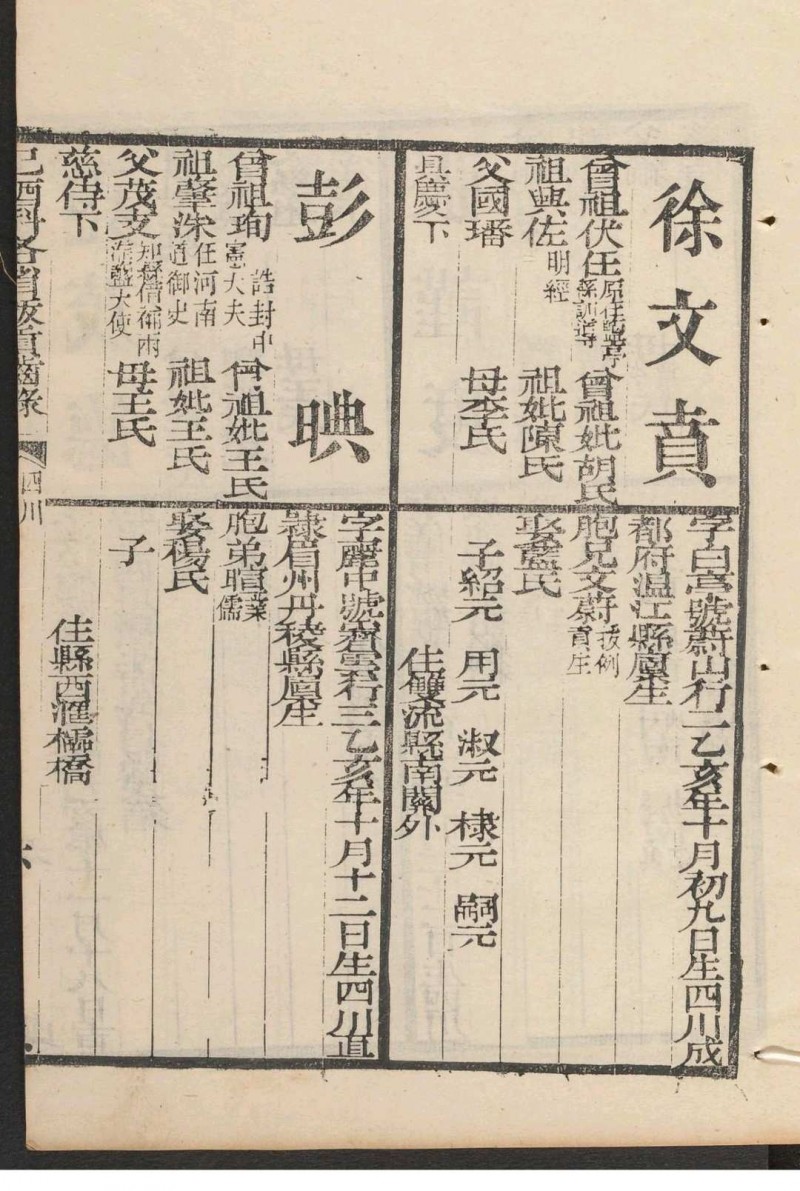 徐文賁
曾祖伏任原任鹽亭縣訓導 曾祖妣胡氏
祖與佐明經 祖妣陳氏
父國璠 母李氏
具慶下
字白亭號蔚山行二乙亥年十月初九日生四川成
都府溫江縣廩生
胞兄文蔚拔例貢生
娶藍氏
子紹元 用元 淑元 棣元 嗣元
住雙流縣南關外
彭晪
曾祖珣誥封中憲大夫 曾祖妣王氏
祖肇洙任河南道御史 祖妣王氏
父茂支知縣借補兩淮鹽大使 母王氏
慈侍下
字麗中號齋雲行三乙亥年十月十二日生四川直
隸眉州丹稜縣廩生
胞弟暄業儒
娶楊氏
子
住縣西滙橋
己酉科各省拔貢齒錄 四川